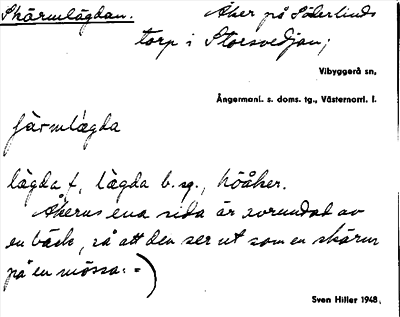 Skärmlägdan. Åker på Söderlinds
torp i Storsvedjan;
Vibyggerå sn,
Ångermanl. s. doms. tg., Västernorrl. l.
lägda f., lägda b. sg., höåker.
Åkerns ena sida är avrundad av
en bäck, så att den ser ut som en skärm
på en mössa. =)
Sven Hiller 1948.